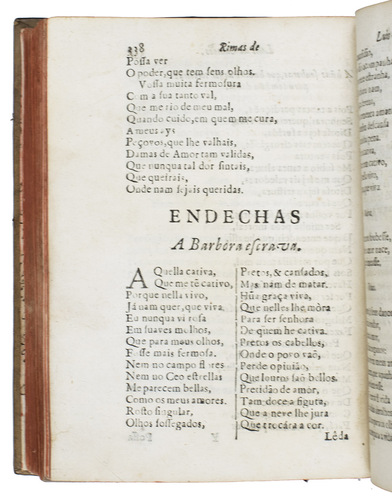 238 Rimas de
Possa ver
O poder, que tem seus olhos.
Vossa muita fermosura
Com a sua tanto val,
Que me rio de meu mal,
Quando cuido, em quem me cura,
A meus ays
Peçovos, que lhe valhais,
Damas de Amor tam validas,
Que nunqua tal dor sintais,
Que queirais,
Onde nam sejais queridas.
ENDECHAS
A Barbora escrava.
AQuella cativa,
Que me tẽ cativo,
Porque nella vivo,
Já nam quer, que viva.
Eu nunqua vi rosa
Em suaves molhos,
Que para meus olhos,
Fosse mais fermosa.
Nem no campo flores
Nem no Ceo estrellas
Me parecem bellas,
Como os meus amores.
Rosto singular,
Olhos sossegados,
Pretos, & cansados,
Mas nam de matar.
Hũa graça viva,
Que nelles lhe móra
Para ser senhora
De quem he cativa.
Pretos os cabellos,
Onde o povo vaõ,
Perde opinião,
Que louros saõ bellos.
Pretidão de amor,
Tam doce a figura,
Que a neve lhe jura
Que trocára a cor.
Lêda